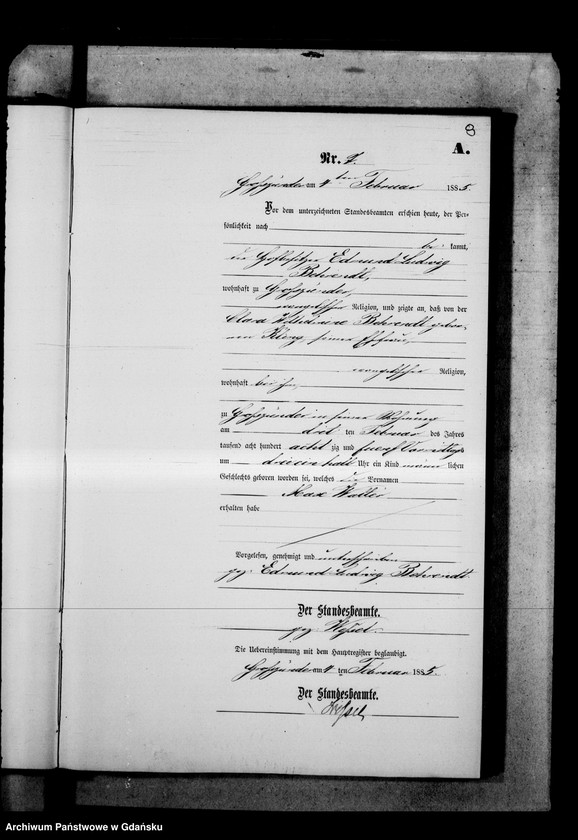 8
A.
Nr. 7.
Großzünder am 4 ten Februar 1885.
Vor dem unterzeichneten Standesbeamten erschien heute, der Per-
sönlichkeit nach
be kannt,
der Hofbesitzer Edmund Ludwig
Behrendt,
wohnhaft zu Großzünder,
evangelischer Religion, und zeigte an, daß von der
Clara Wilhelmine Behrendt gebor-
nen seiner Ehefrau,
evangelischer Religion,
wohnhaft bei ihm,
zu Großzünder in seiner Wohnung
am drei ten Februar des Jahres
tausend acht hundert acht zig und fuenf Vormittags
um drei ein halb Uhr ein Kind männ lichen
Geschlechts geboren worden sei, welches die Vornamen
Max Walter
erhalten habe
Vorgelesen, genehmigt und unterschrieben
gez. Edmund Ludwig Behrendt
Der Standesbeamte.
gez. Wessel.
Die Uebereinstimmung mit dem Hauptregister beglaubigt.
Großzünder am 4 ten Februar 1885.
Der Standesbeamte.
Wessel
Archiwum Państwowe w Gdańsku